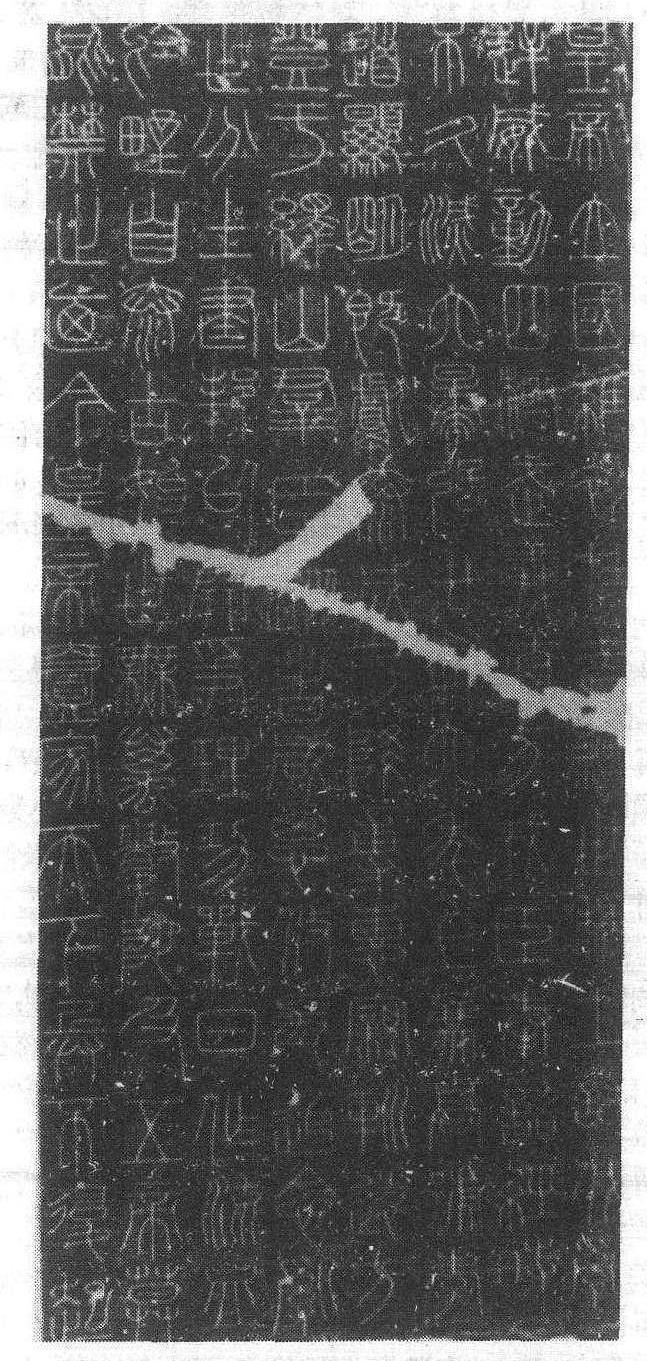 皇帝立國維初在昔嗣世稱王討伐亂
逆威動四極武義直方戎臣奉詔經時
不久滅六暴強廿有六年上薦高號孝
道顯明既獻泰成乃降專惠親巡遠方
登于繹山羣臣從者咸思攸長追念亂
世分土建邦以開爭理功戰日作流血
於野自泰古始世無萬數陀及五帝莫
能禁止迺今皇帝壹家天下兵不復起